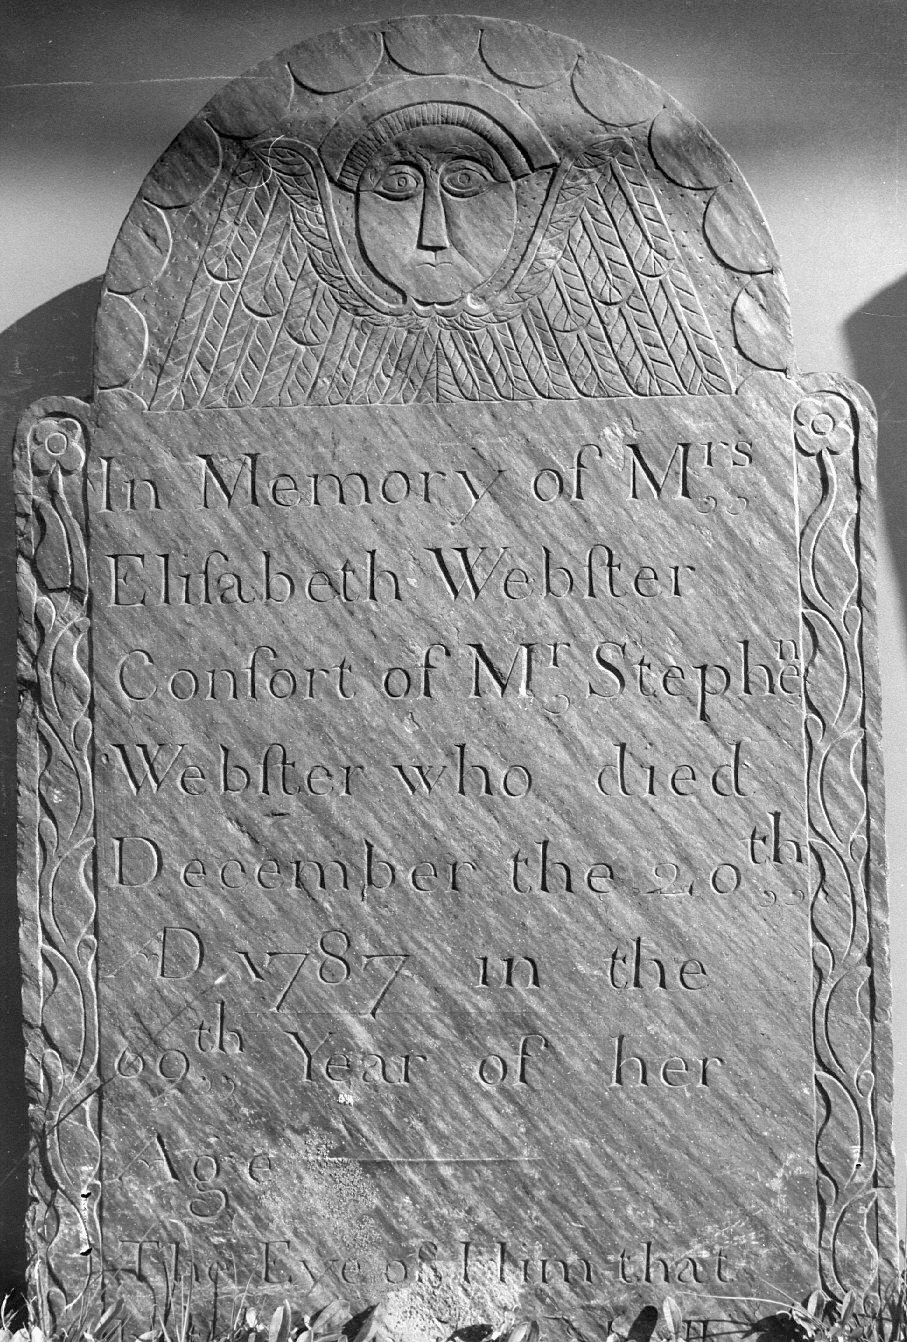 In Memory of Mrs
Eliſabeth Webſter
Conſort of Mr Stephn
Webſter who died
December the 20th
D 1787 in the
69th Year of her
Age
The Eye of Him that